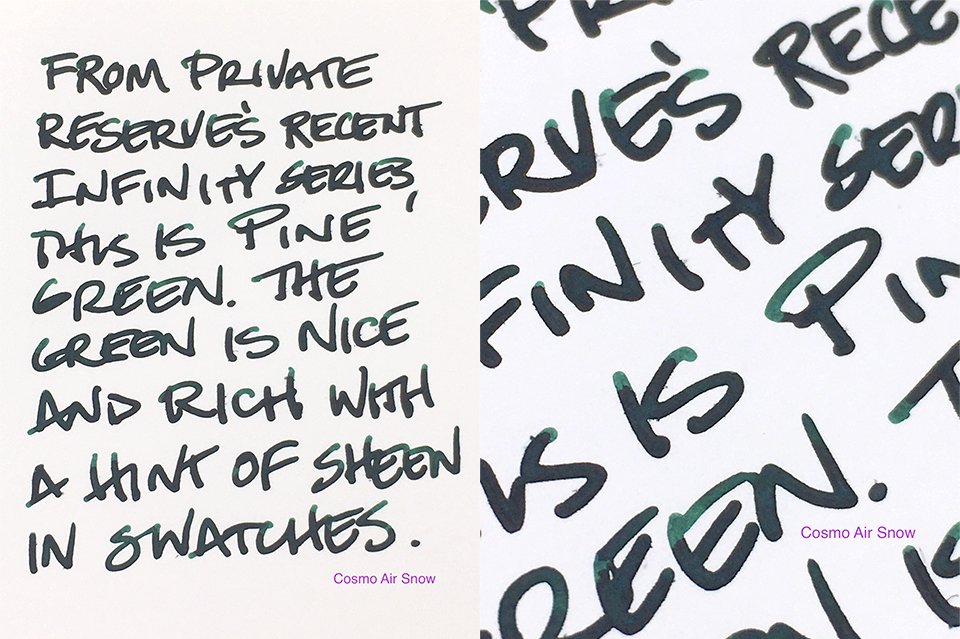 FROM PRIVATE
RESERVE'S RECENT
INFINITY SERIES,
THIS IS PINE
GREEN. THE
GREEN IS NICE
AND RICH WITH
A HINT OF SHEEN
IN SWATCHES.
Cosmo Air Snow
RESERVE'S RECE
FINITY SER
IS IS PIN
REEN. T
Cosmo Air Snow